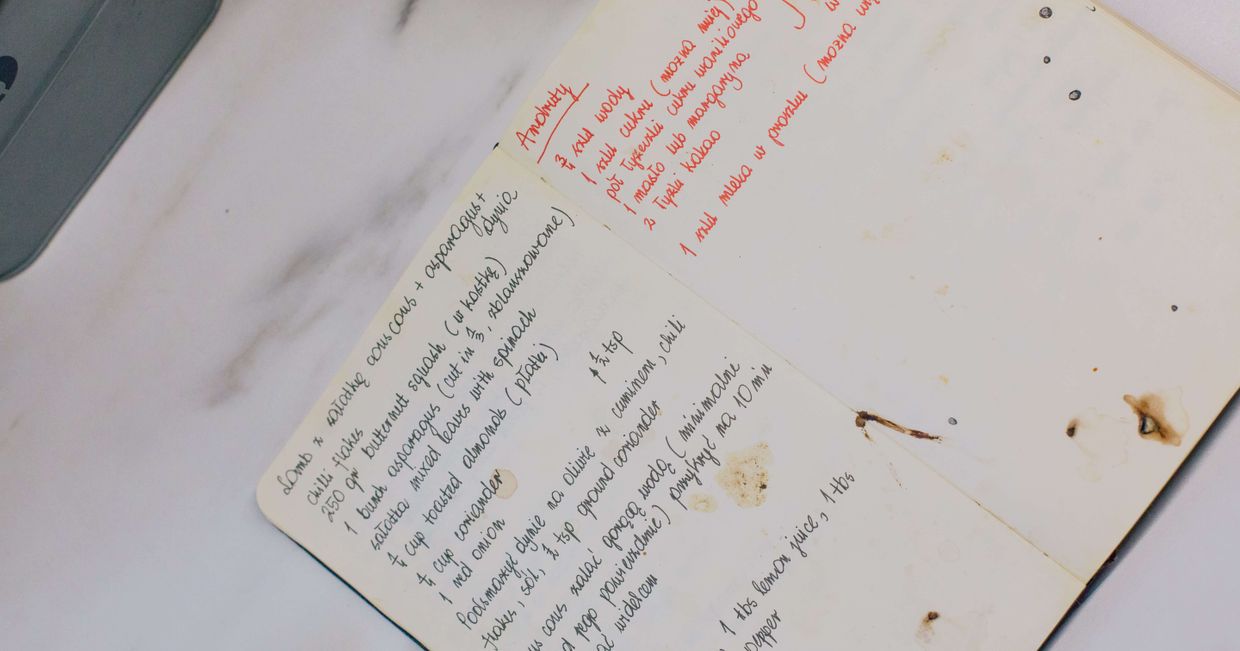 Andruty
3/4 szkl wody
1 szkl cukru (można mniej)
pół łyżeczki cukru waniliowego
1 masło lub margaryna
2 łyżki kakao
1 szkl mleka w proszku (można
Lamb z sałatką couscous + asparagus +
dynia
chilli flakes
250 gr butternut squash (w kostkę)
1 bunch asparagus (cut in 1/3, zblanszowane)
sałatka mixed leaves with spinach
1/4 cup toasted almonds (płatki)
1/4 cup coriander
1 red onion
1/2 tsp
Podsmażyć dynie na oliwie z cuminem, chili
flakes, sól, 1/2 tsp ground coriander
cous zalać gorącą wodą (minimalnie
tego powierzchnie) przykryć na 10 min
widelcem
1 tbs lemon juice, 1 tbs
pepper